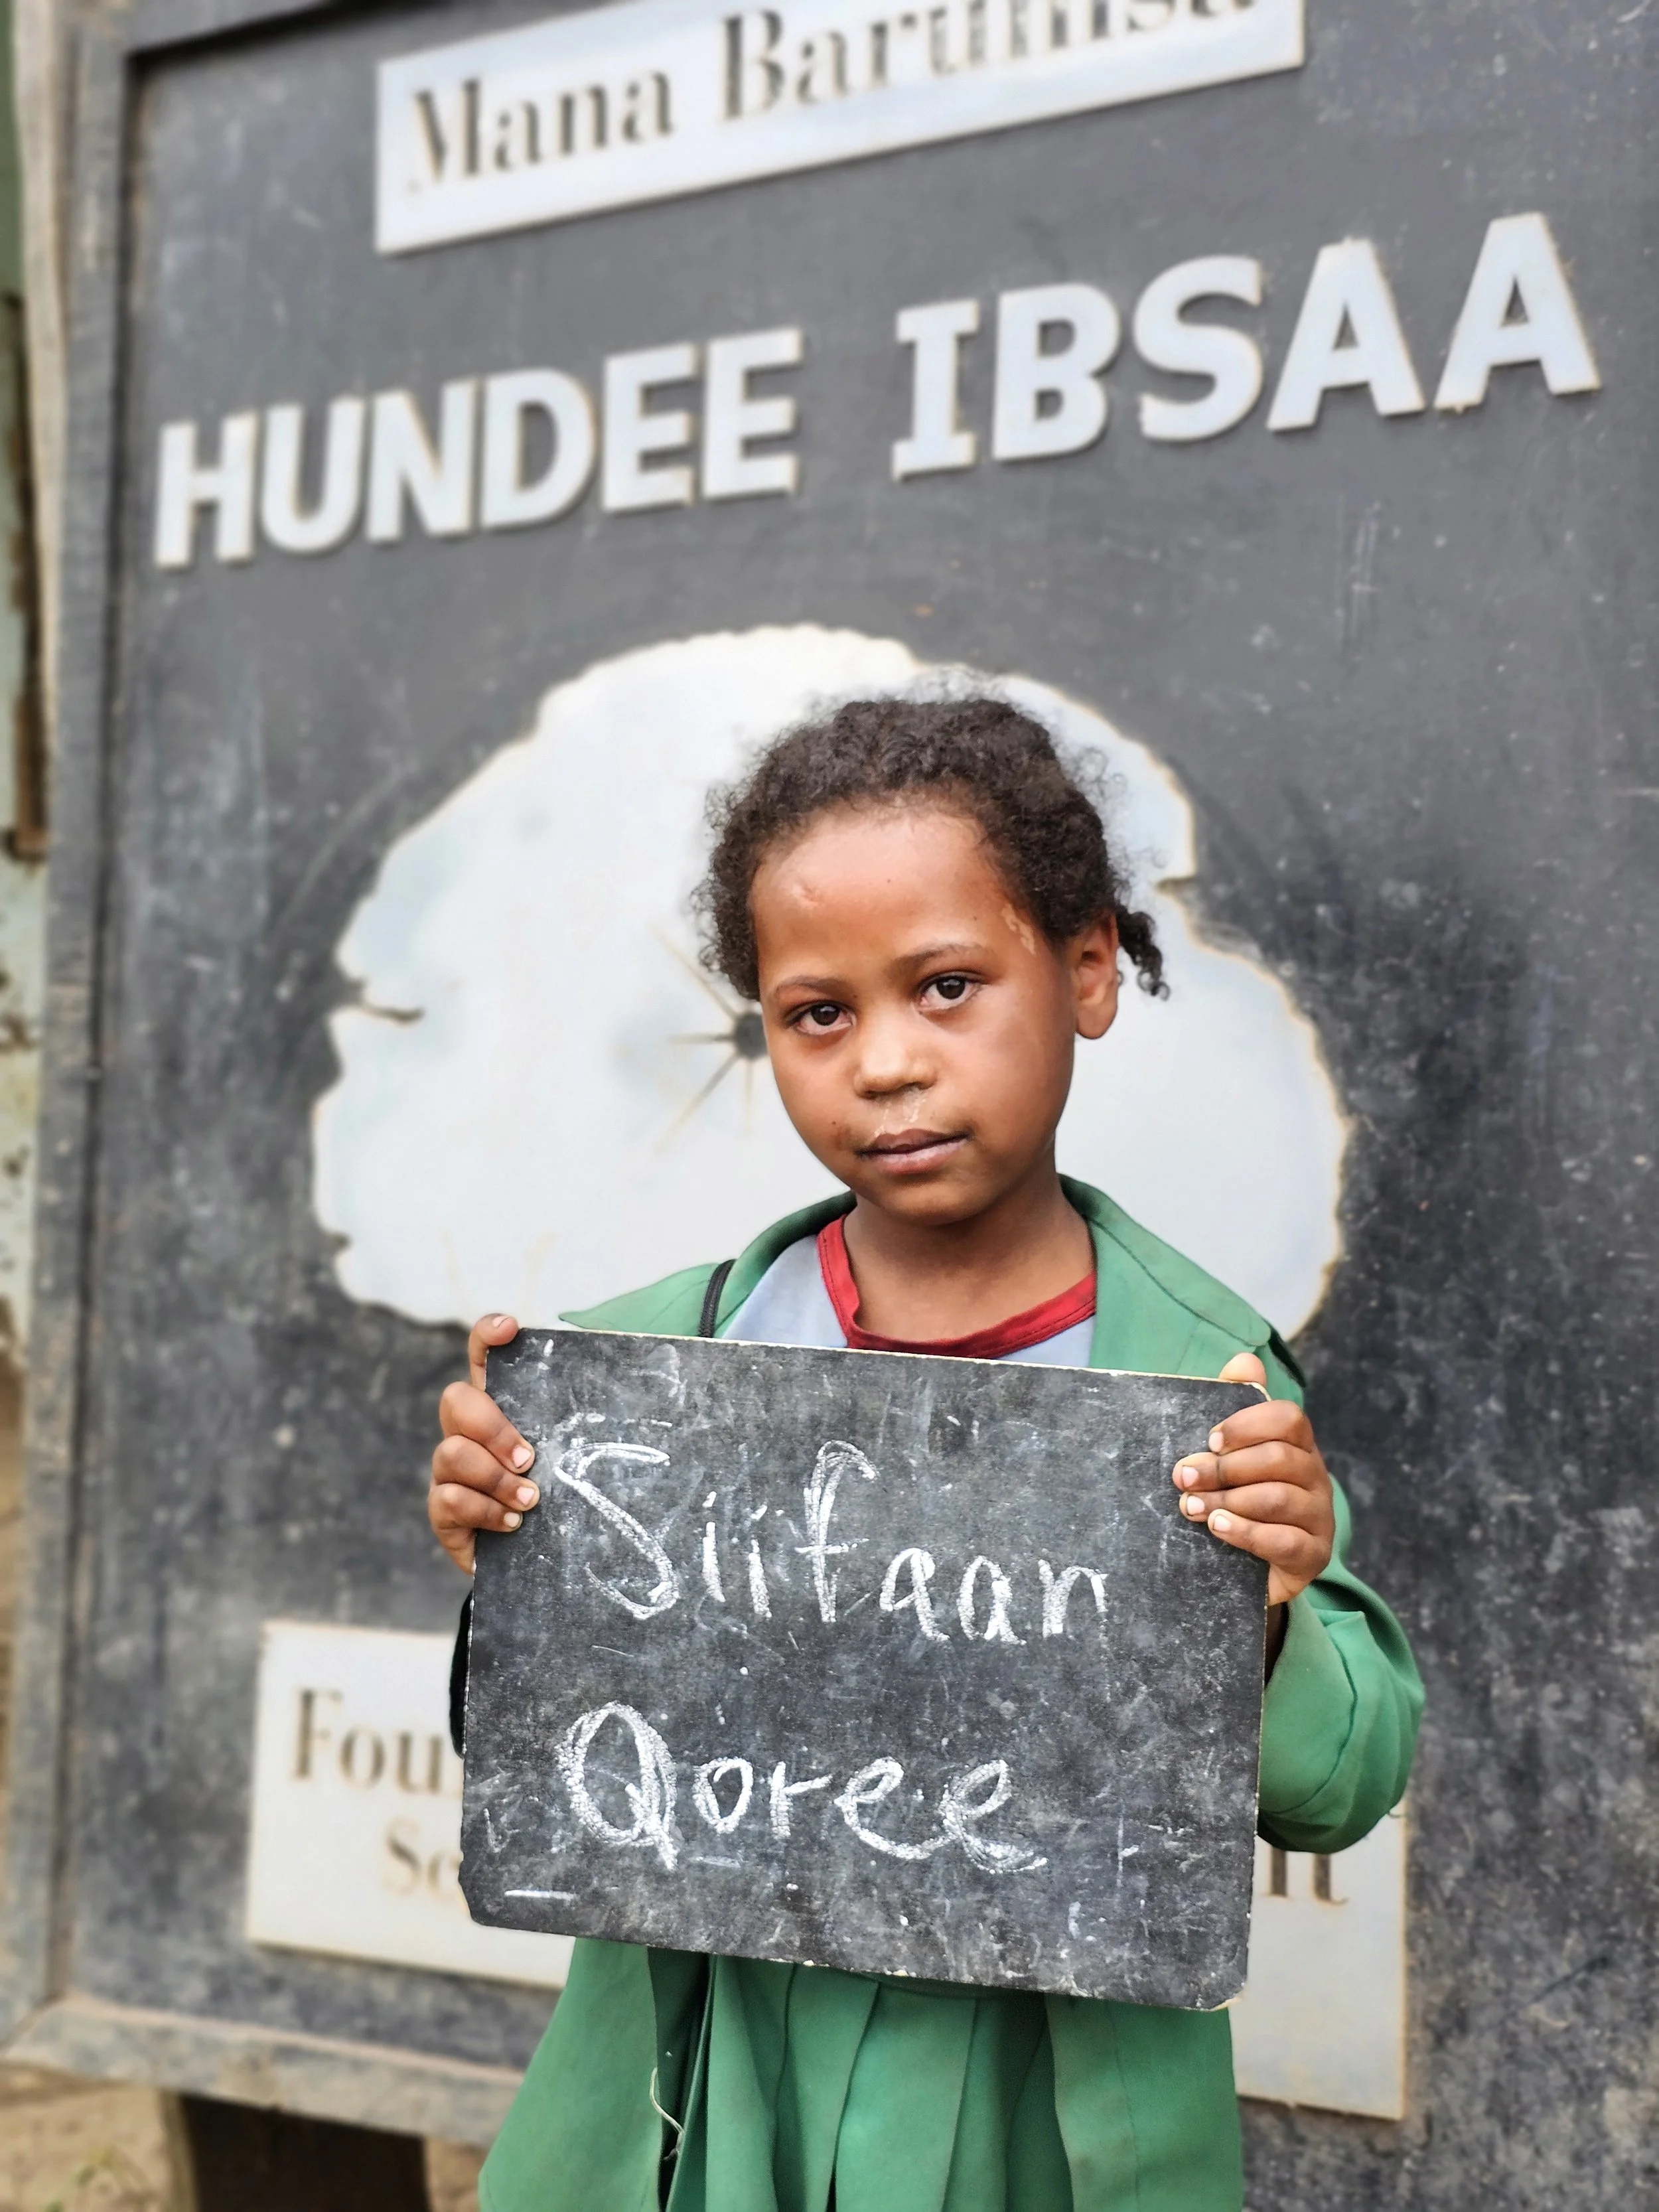 Mana Barumsa
HUNDEE IBSAA
Siifaan
Qoree